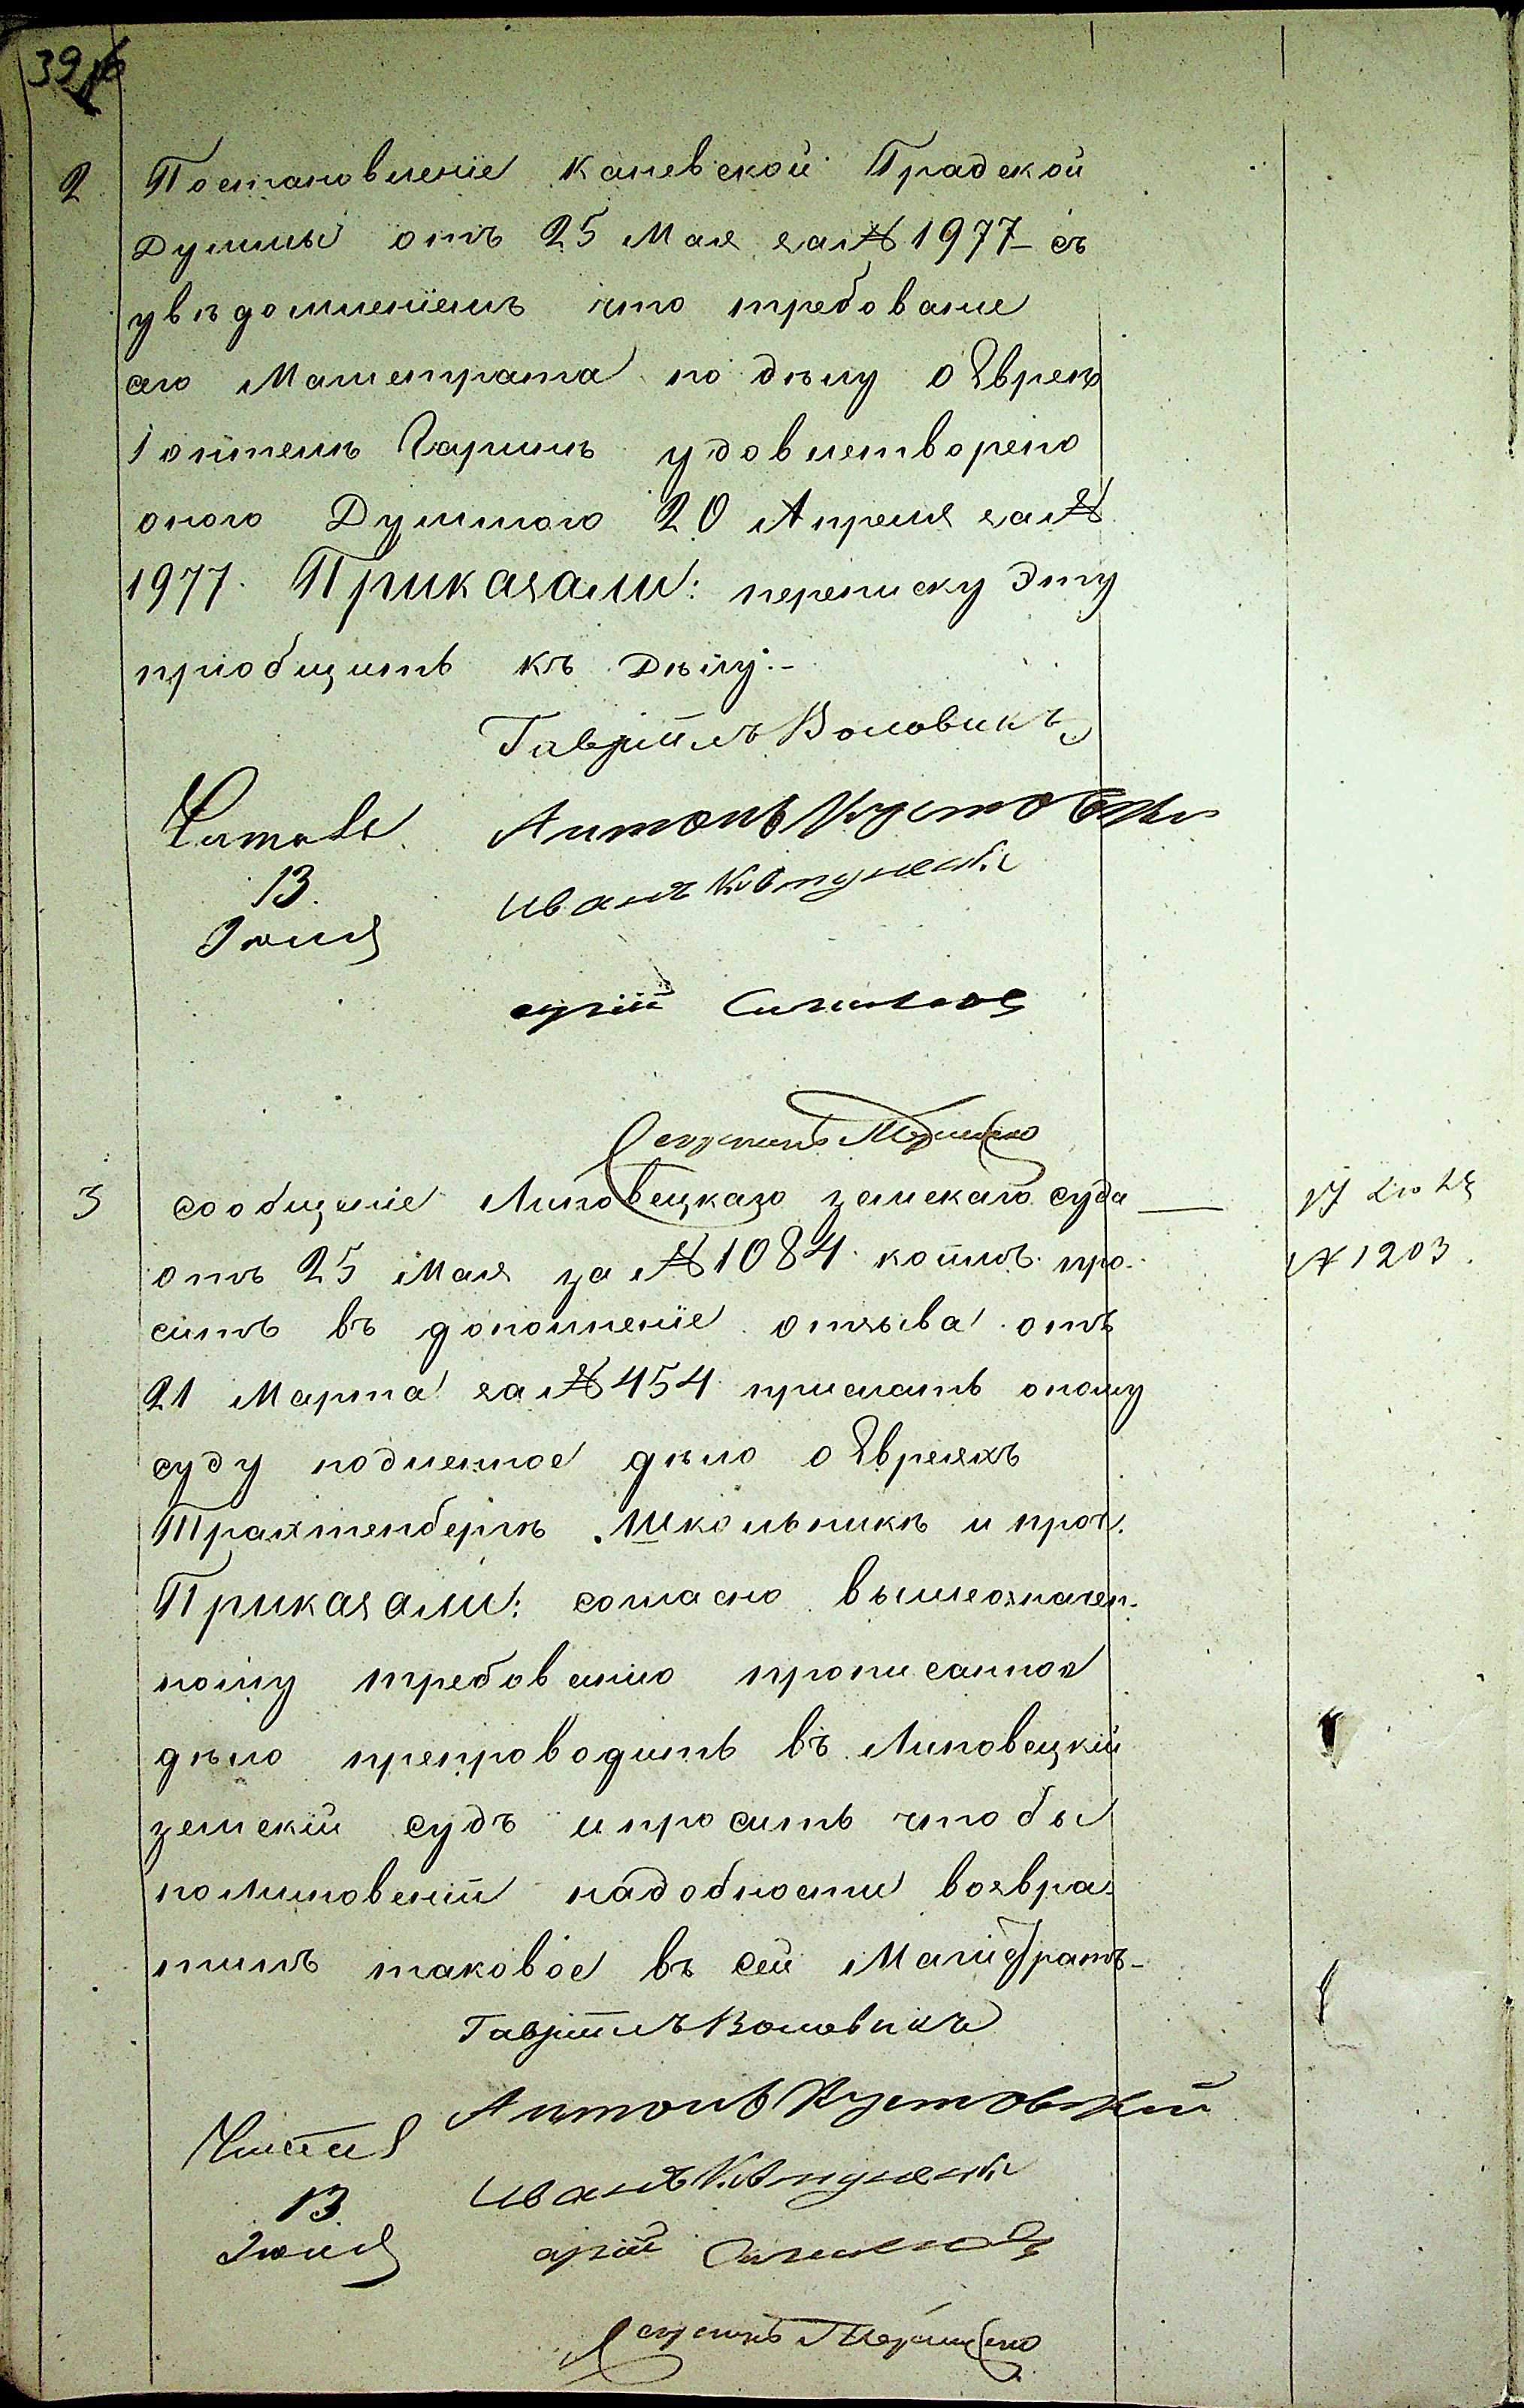 39
2 Постановленіе Каневской Градской
Думы отъ 25 Мая за № 1977 – съ
увѣдомленіемъ что требованіе
сего Магистрата по дѣлу о Евреѣ
удовлетворено
оною Думою 20 Апреля за №
1977. Приказали: переписку эту
пріобщить къ дѣлу.–
Гавріилъ Воловикъ
Читалъ Антонъ Кустовскій
13. Иванъ
Іюня
3 сообщеніе Липовецкаго земскаго суда — 17 Іюня
отъ 25 Мая за № 1084. коимъ про- № 1203.
ситъ въ дополненіе отзыва отъ
21 Марта за № 454 прислать оному
суду подленное дѣло о Евреяхъ
Трахтенбергѣ Школьникѣ и проч.
Приказали: согласно вышеозначен-
ному требованію прописанное
дѣло препроводить въ Липовецкій
земскій судъ и просить чтобы
по минованіи надобности возвра-
тилъ таковое въ сей Магистратъ–
Гавріилъ Воловикъ
Антонъ Кустовскій
Читалъ
13. Иванъ
Іюня